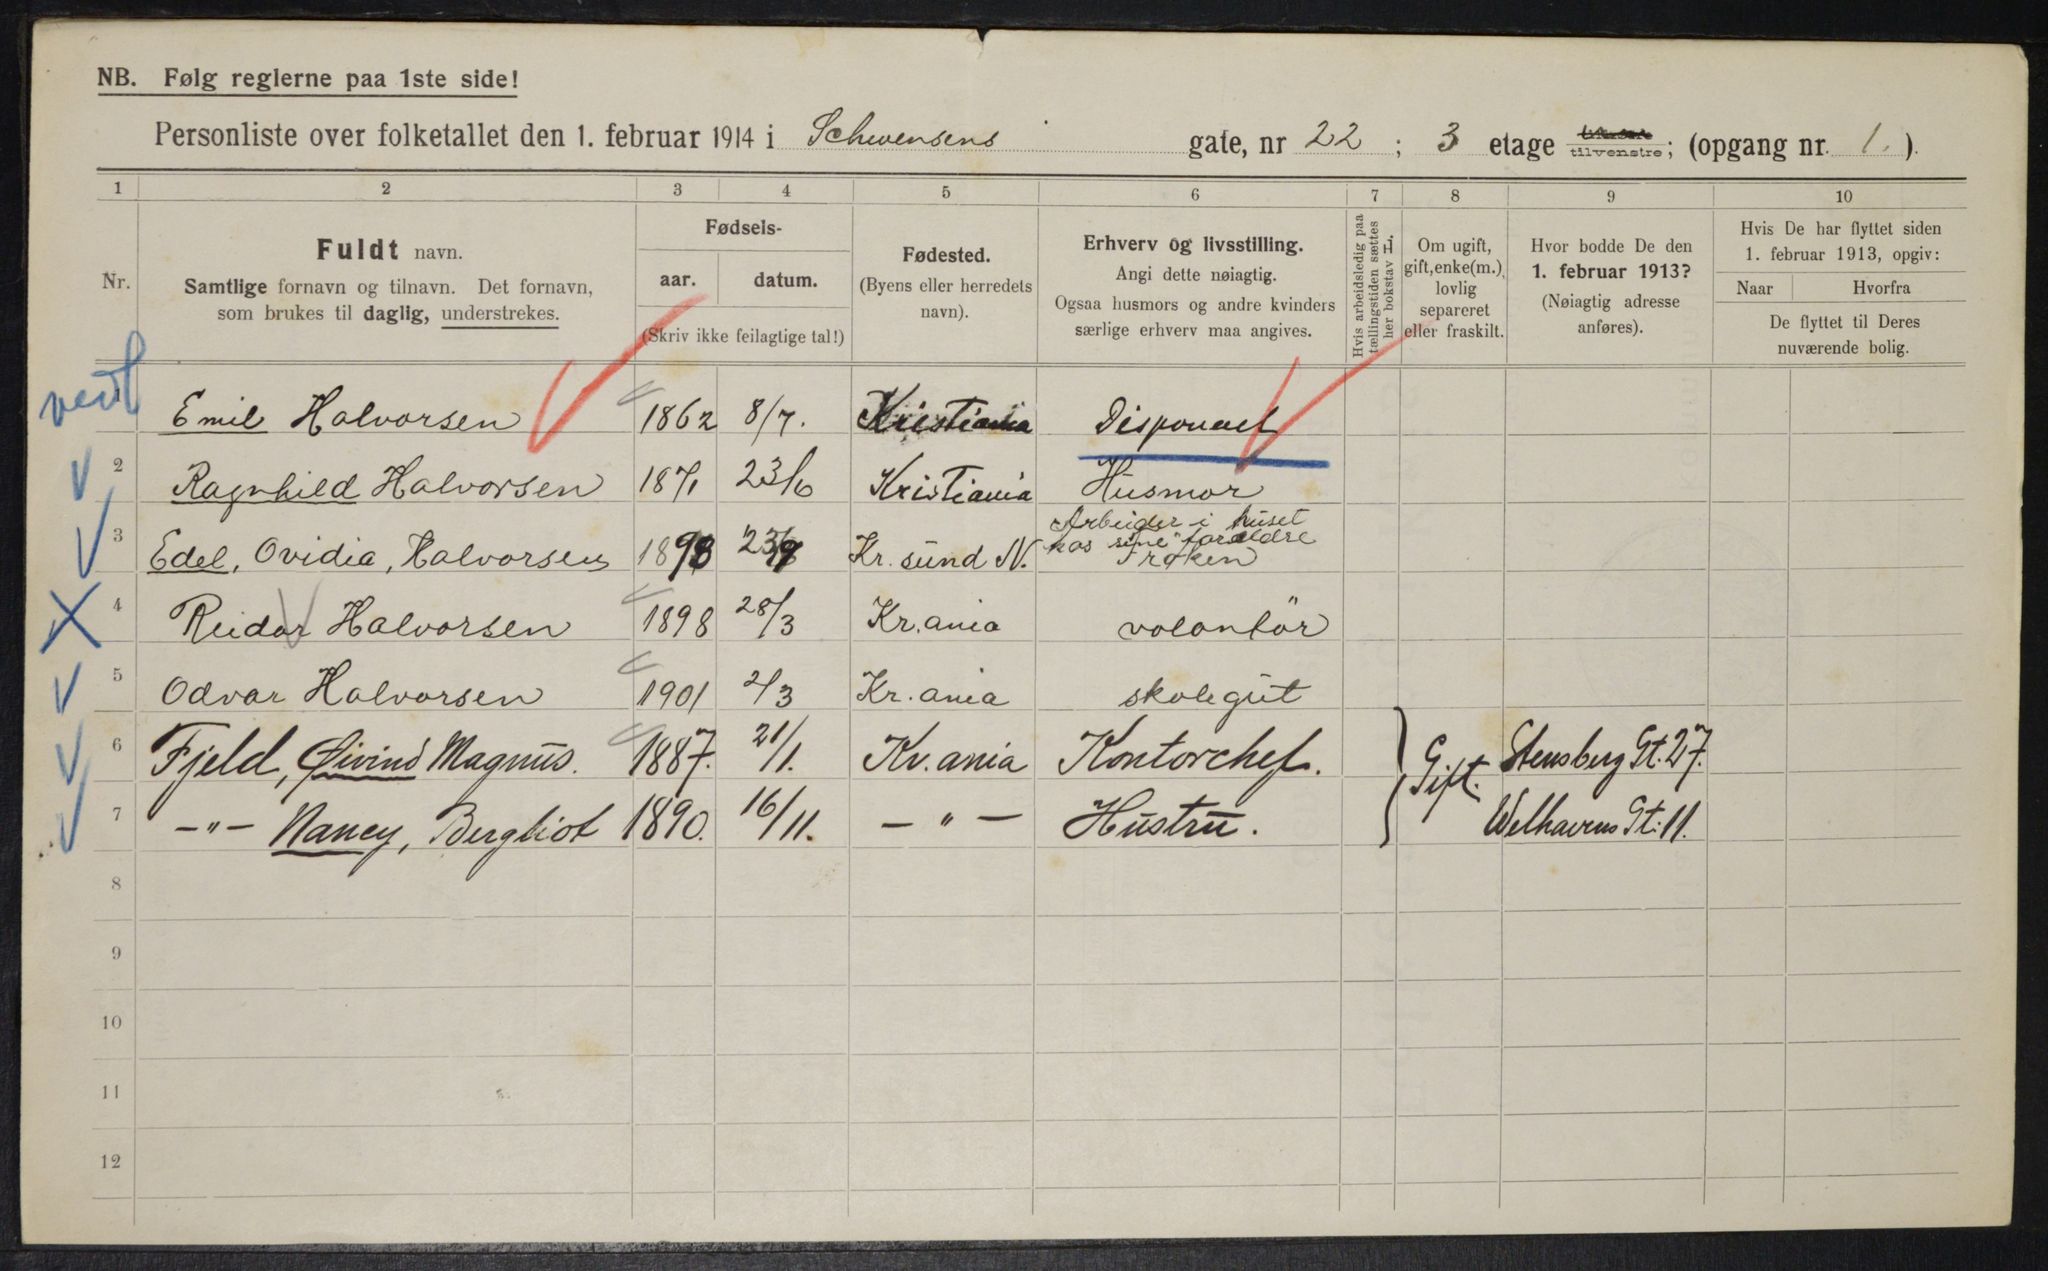 NB. Følg reglerne paa 1ste side!
Personliste over folketallet den 1. februar 1914 i Schwensens gate, nr 22 ; 3 etage tilvenstre; (opgang nr. 1.)
1 2 3 4 5 6 7 8 9 10
Nr.
Fuldt navn.
Samtlige fornavn og tilnavn. Det fornavn,
som brukes til daglig, understrekes.
Fødsels-
aar. datum.
(Skriv ikke feilagtige tal!)
Fødested.
(Byens eller herredets
navn).
Erhverv og livsstilling.
Angi dette nøiagtig.
Ogsaa husmors og andre kvinders
særlige erhverv maa angives.
Hvis arbeidsledig paa
tællingstiden sættes
her bokstav L.
Om ugift,
gift, enke(m.),
lovlig
separeret
eller fraskilt.
Hvor bodde De den
1. februar 1913?
(Nøiagtig adresse
anføres).
Hvis De har flyttet siden
1. februar 1913, opgiv:
Naar Hvorfra
De flyttet til Deres
nuværende bolig.
Emil Halvorsen 1862 8/7. Kristiania Disponent
2 Ragnhild Halvorsen 1871 23/6 Kristiania Husmor
3 Edel, Ovidia, Halvorsen 1898 Kr.sund N. Arbeider i huset
hos sine forældre
Frøken
4 Reidar Halvorsen 1898 28/3 Kr.ania volontör
5 Odvar Halvorsen 1901 2/3 Kr.ania skolegut
6 Fjeld, Øivind Magnus. 1887. 21/1. Kr.ania Kontorchef. Gift. Stensberg Gt. 27.
7 —"— Nancy, Bergliot 1890. 16/11. — " — Hustru. Welhavens Gt. 11.
8
9
10
11
12